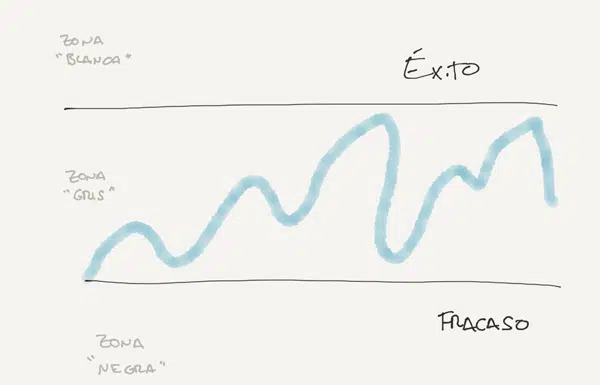 ZONA
"BLANCA"
Éxito
ZONA
"GRIS"
FRACASO
ZONA
"NEGRA"